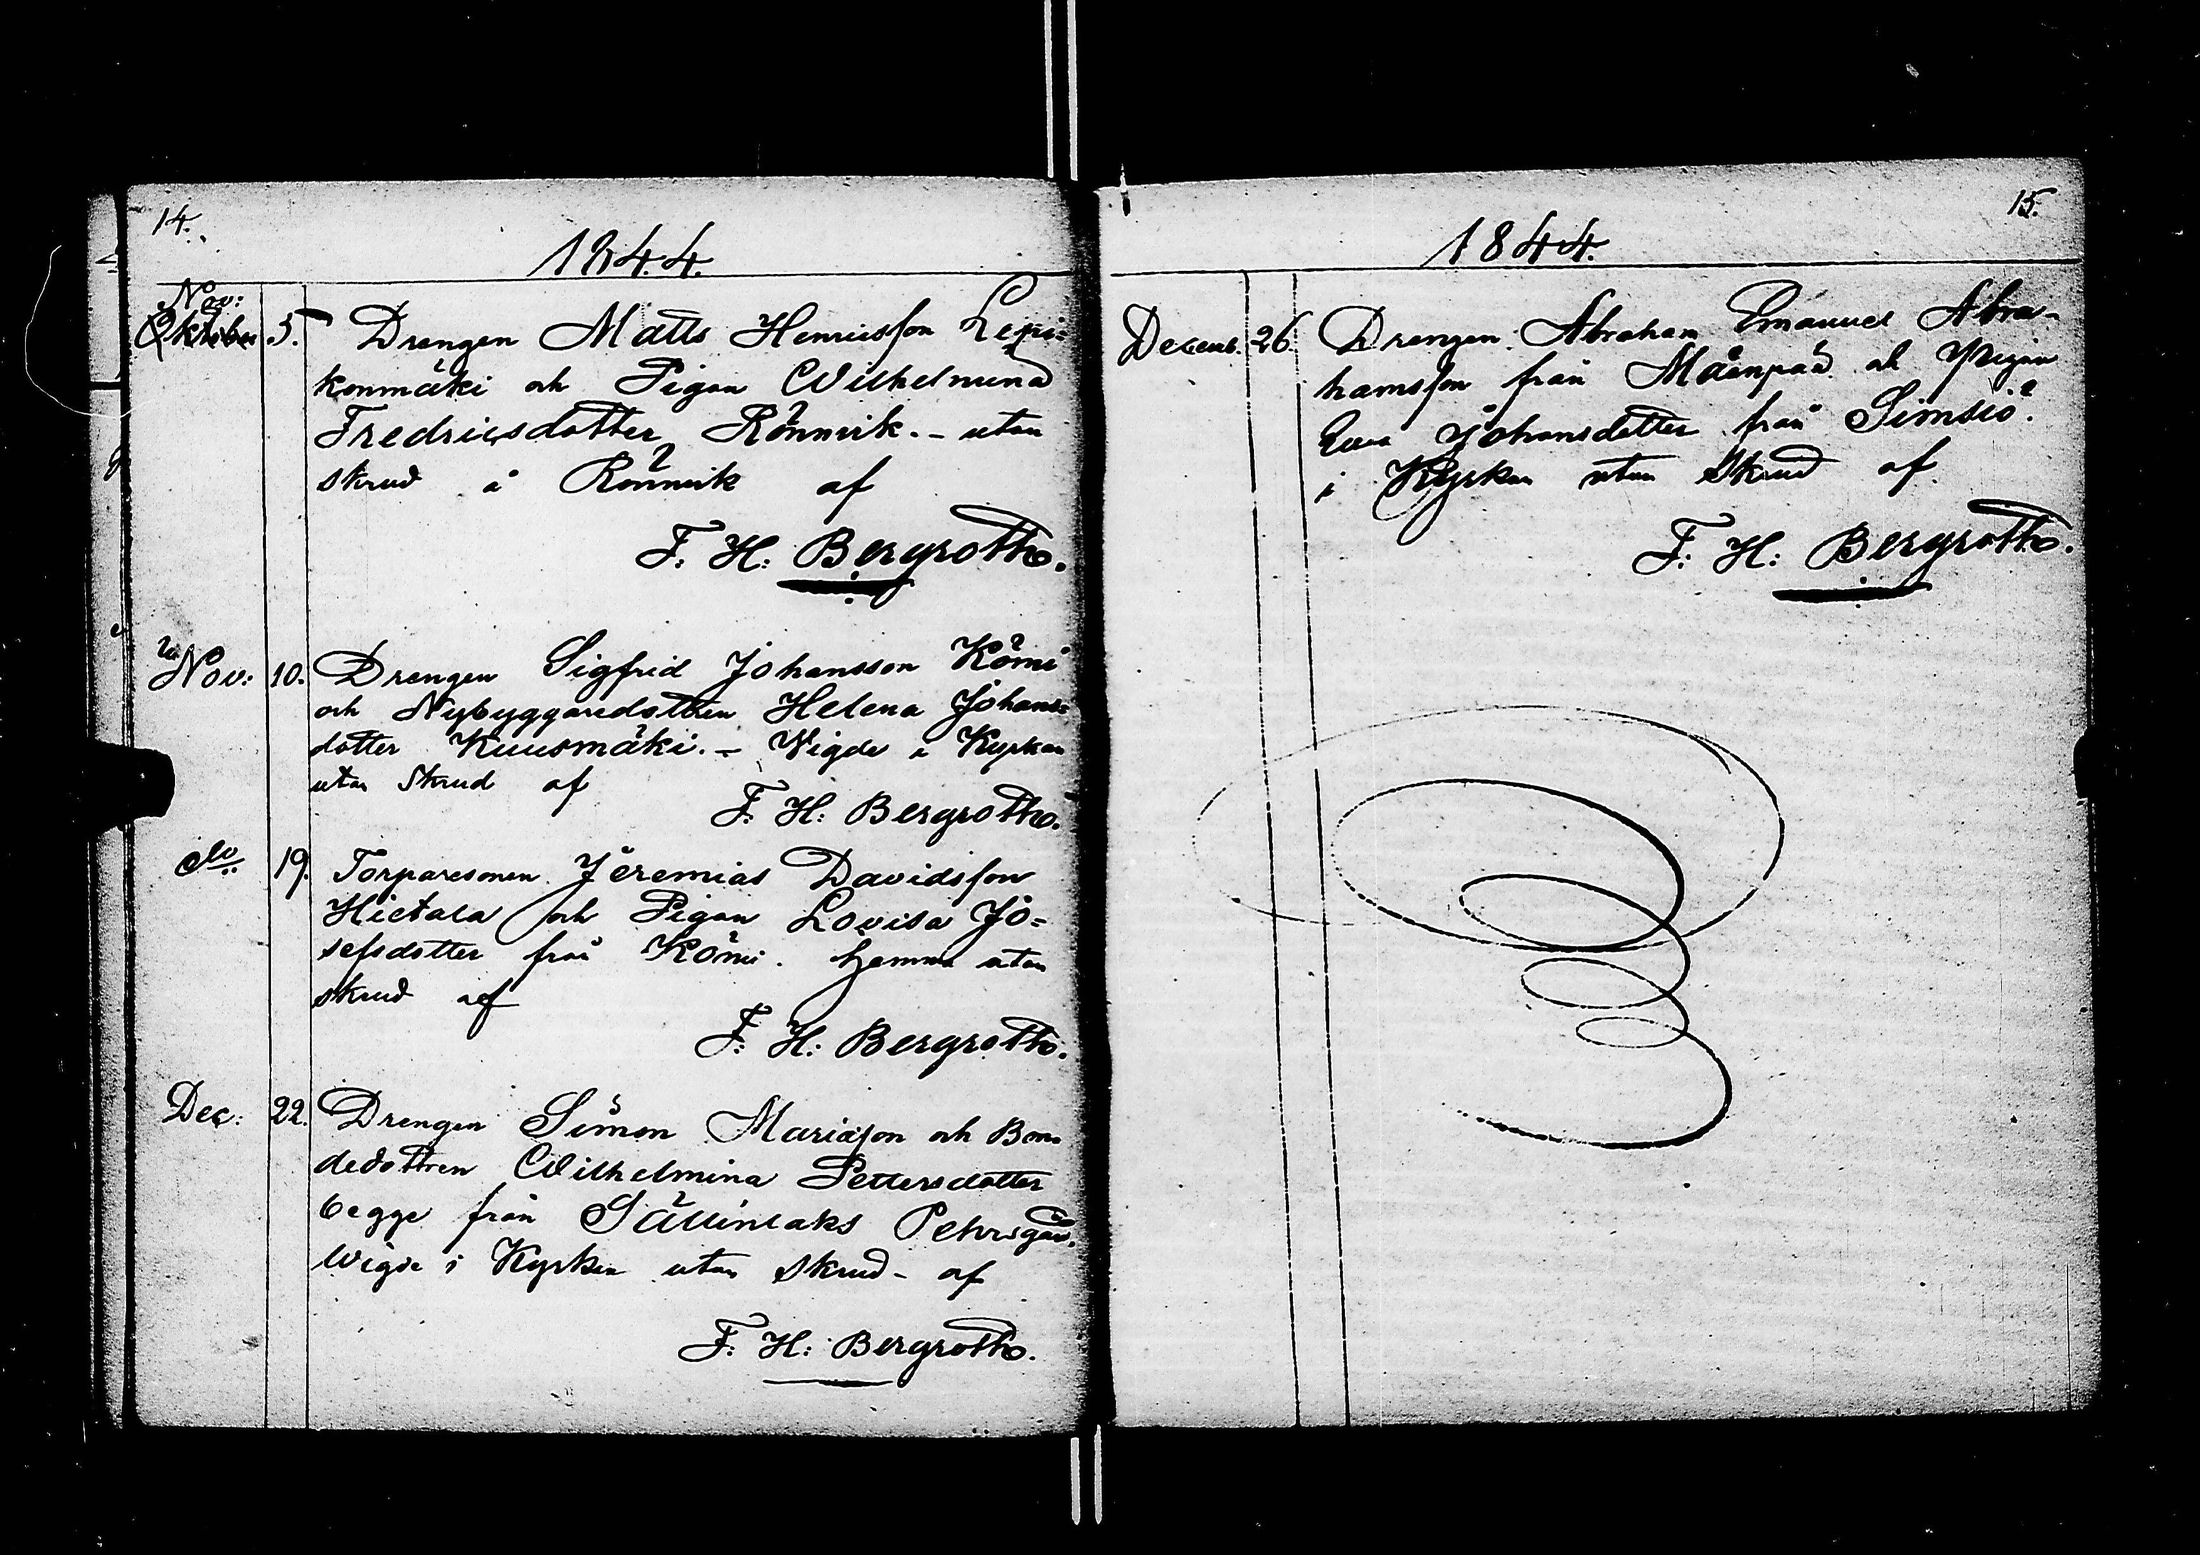 14.
1844.
Nov:
Oktober 5. Drengen Matts Henricsson Lepi-
konmäki och Pigan Wilhelmina
Fredricsdotter Rönnvik. - utan
skrud å Rönnvik af
F: H: Bergroth.
Nov: 10. Drengen Sigfrid Johansson Kömi
och Nybyggaredottren Helena Johans-
dotter Kuusmäki. - Wigde i Kyrkan
utan skrud af
F: H: Bergroth.
do 19. Torparesonen Jeremias Davidsson
Hietala och Pigan Lovisa Jo-
sefsdotter från Kömi. hemma utan
skrud af
F: H: Bergroth.
Dec: 22. Drengen Simon Mariäson och Bon-
dedottren Wilhelmina Pettersdotter
begge från Sällinlaks Pehrsgår.
Wigde i Kyrkan utan skrud - af
F: H: Bergroth.
15.
1844.
Decemb. 26. Drengen Abraham Emanuel Abra-
hamsson från Mäenpää och Pigan
Eva Johansdotter från Simsiö.
i Kyrkan utan Skrud af
F: H: Bergroth.